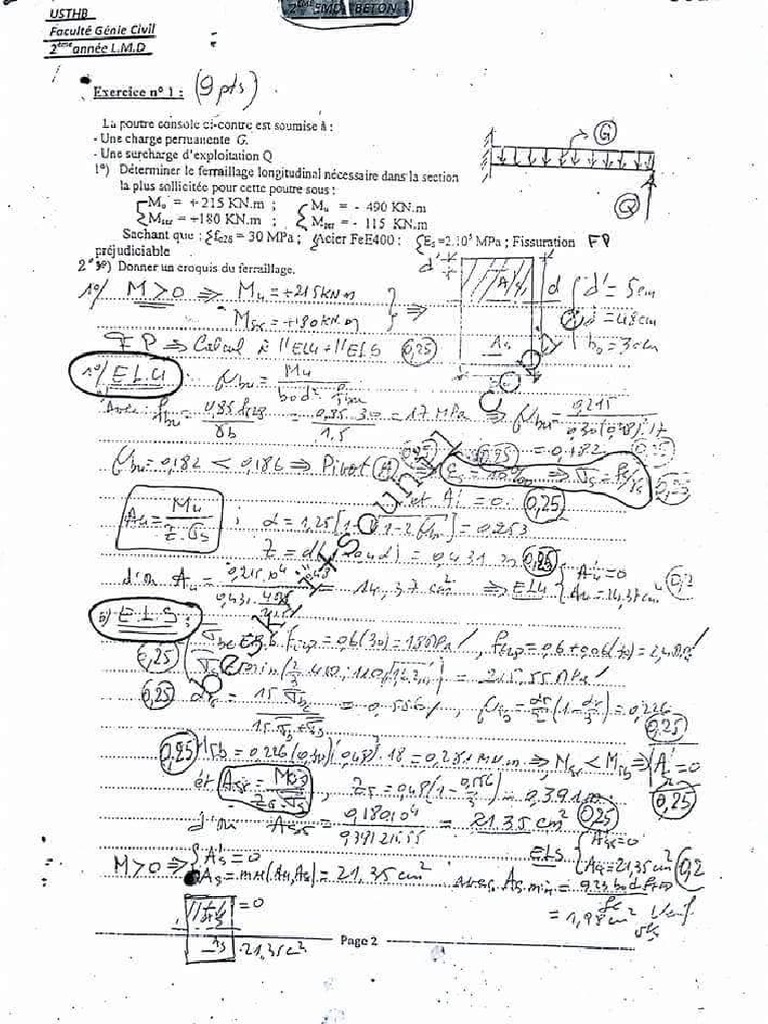 USTHB
Faculté Génie Civil
2ème année L.M.D
2ème SMD. (BETON 1
Exercice n° 1 : (9 pts)
La poutre console ci-contre est soumise à :
- Une charge permanente G.
- Une surcharge d'exploitation Q
1°) Déterminer le ferraillage longitudinal nécessaire dans la section
la plus sollicitée pour cette poutre sous :
Mu = +215 KN.m ; Mu = - 490 KN.m
Mser = +180 KN.m ; Mser = - 115 KN.m
Sachant que : fc28 = 30 MPa ; Acier FeE400 : Es =2.10⁵ MPa ; Fissuration FP
préjudiciable
2°) Donner un croquis du ferraillage.
G
Q
d'
A's
d
As
d' = 5cm
d = 48cm
b0 = 30cm
1°/ M>0 ⇒ Mu = +215 KN m
Mser = +180 KN.m
⇒
FP ⇒ Calcul à l'ELU + l'ELS (0,25)
1°/ E.L.U : μbu = Mu / b0d² fbu
Avec : fbu = 0,85 fc28 / γb = 0,85. 30 / 1,5 = 17 MPa ⇒ μbu = 0,215 / 0,30 (0,48)². 17
= 0,182
μbu = 0,182 < 0,186 ⇒ Pivot A ⇒ εs = 10‰ ⇒ σs = fe/γs
et A' = 0. (0,25)
Au = Mu / Z.σs ; α = 1,25 [1-√1-2μbu] = 0,253
Z = d(1-0,4α) = 0,431 m (0,25)
d'où Au = = 14,37 cm² ⇒ ELU A'u = 0
Au = 14,37 cm²
b) E.L.S ; σbc = 0,6 fc28 = 0,6(30) = 18 MPa , ft28 = 0,6+0,06(30) = 2,4 MPa
(0,25) σs = min(2/3 400 ; 110√ ) = 215,55 MPa
(0,25) αr = 15 σbc / 15 σbc + σs = 0,556 , μrb = αr/2 (1-αr/3) = 0,226
(0,25)
(0,25) Mrb = 0,226 (0,30) (0,48)². 18 = 0,281 MN.m ⇒ Mser < Mrb ⇒ A' = 0
(0,25)
et Aser = Mser / Zs.σs , Zs = 0,48 (1- 0,556/3) = 0,391 m
d'où Aser = 0,180.10⁴ / 0,391.215,55 = 21,35 cm² (0,25)
ELS A's = 0
As = 21,35 cm²
M>0 ⇒ A's = 0
As = max(Au, As) = 21,35 cm² avec As min = 0,23 b0d ft28 / fe
= 1,98 cm² Verif
= 0
21.35 cm²
Page 2